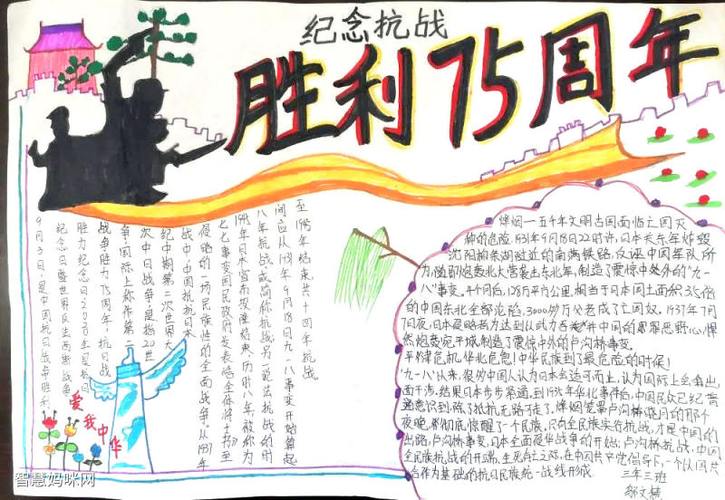 纪念抗战
胜利75周年
9月3日,是中国抗日战争胜利
纪念日暨世界反法西斯战争
胜力纪念日2020年是抗日
战争胜力75周年。抗日战
争,国际上称作第二
次中日战争,是指20世
纪中期第二次世界大
战中,中国抵抗日本
侵略的一场民族性的全面战争。从1937年
七七事变国民政府发表
八年抗战或简称抗战另一说法抗战的时
间应从1931年9月18日九一八事变开始算起
至1945年结束共十四年抗战
爱我中华
烽烟一五千年文明古国面临亡国灭
种的危险.1931年9月18日22时许,日本关东军炸毁
沈阳柳条湖附近的南满铁路,反诬中国军队所
为,随即炮轰北大营袭占东北军,制造了震惊中外的“九一
八”事变。4个月后,128万平方公里,相当于日本国土面积3.5倍
的中国东北全部沦陷,3000多万父老成了亡国奴。1937年7月
7日夜,日本侵略者为达到以武力吞并中国的罪恶野心,悍
然炮轰宛平城制造了震惊中外的卢沟桥事变。
平津危机,华北危急!中华民族到了最危险的时候!
“九一八”以来,很多中国人认为日本会适可而止,认为国际上会有出
面干涉,结果日本步步紧逼,到1935年华北事件后,中国民众已经普
遍意识到:除了抵抗无路可走了,烽烟笼罩卢沟桥残月的那个
夜晚,都彻底惊醒了一个民族,只有全民族实行抗战,才是中国的
出路,卢沟桥事变,日本全面侵华战争的开始;卢沟桥抗战,中国
全民族抗战的开端,生死存亡之际,在中国共产党倡导下,一个以国共
合作为基础的抗日民族统一战线形成
三年三班
智慧妈咪网